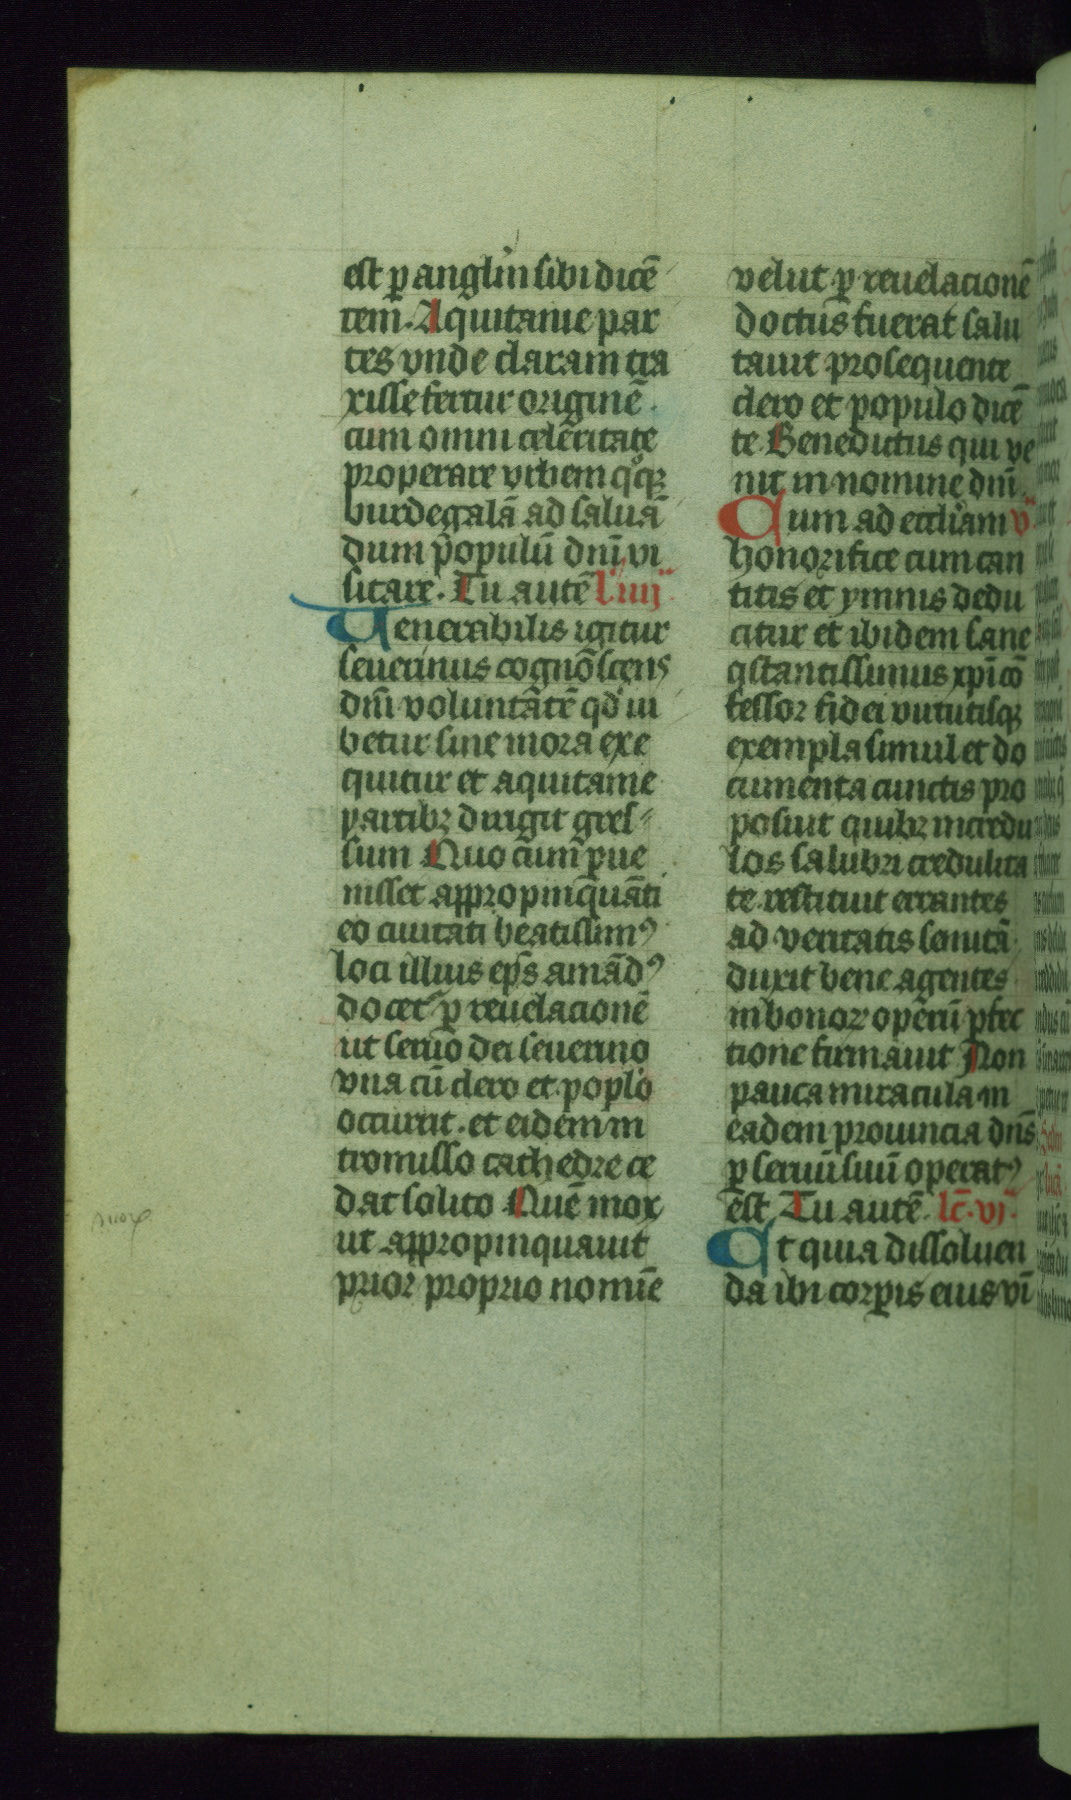 est ꝑ angl'm sibi dicē
tem. Aquitanie par
tes vnde claram tra
xisse fertur originē.
cum omni celeritate
properare vrbem qͦqꝫ
burdegalā ad saluā
dum p̄populū dn̄i vi
sitare. Tu autē l' iiij
Venerabilis igitur
seuerinus cognoscens
dn̄i voluntatē qd' iu
betur sine mora exe
quitur et aquitanie
partibꝫ dirigit gres
sum Quo cum ꝑue
nisset appropinquāti
eo ciuitati beatissimꝰ
loci illius ep̄s amādꝰ
docet᷑ ꝑ reuelacionē
ut seruo dei seuerino
vna cū clero et popl'o
occurrit. et eidem in
tromisso cathedre ce
dat solito Quē mox
ut appropinquauit
prior proprio nomīe
velut ꝑ reuelacionē
doctus fuerat salu
tauit prosequente
clero et populo dicē
te Benedictus qui ve
nit in nomine dn̄i.
Cum ad eccl'iam v
honorifice cum can
titis et ymnis dedu
citur et ibidem sane
ꝯstantissimus xp̄i cō
fessor fidei virtutisqꝫ
exempla simul et do
cumenta cunctis pro
posuit quibꝫ incredu
los salubri credulita
te restituit errantes
ad veritatis semitā
duxit bene agentes
in bonoꝝ operū ꝑfec
tione firmauit Non
pauca miracula in
eadem prouincia dn̄s
ꝑ seruū suū operatꝰ
est Tu autē. lc̄. vj
Et quia dissoluen
da ibi corꝑis eius vī